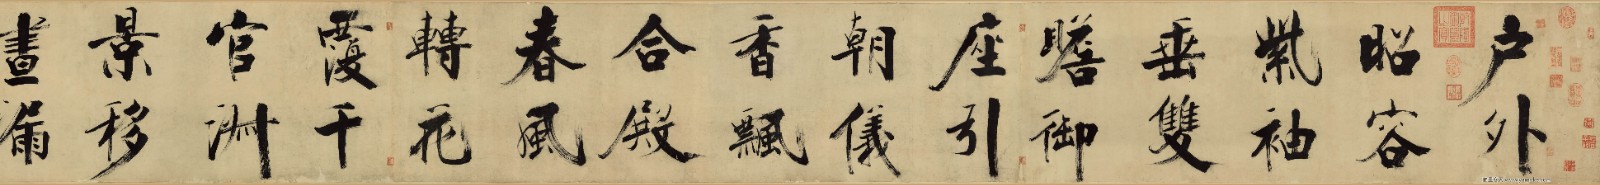 户外
昭容
紫袖
垂雙
瞻御
座引
朝儀
香飄
合殿
春風
轉花
覆千
官淑
景移
晝漏